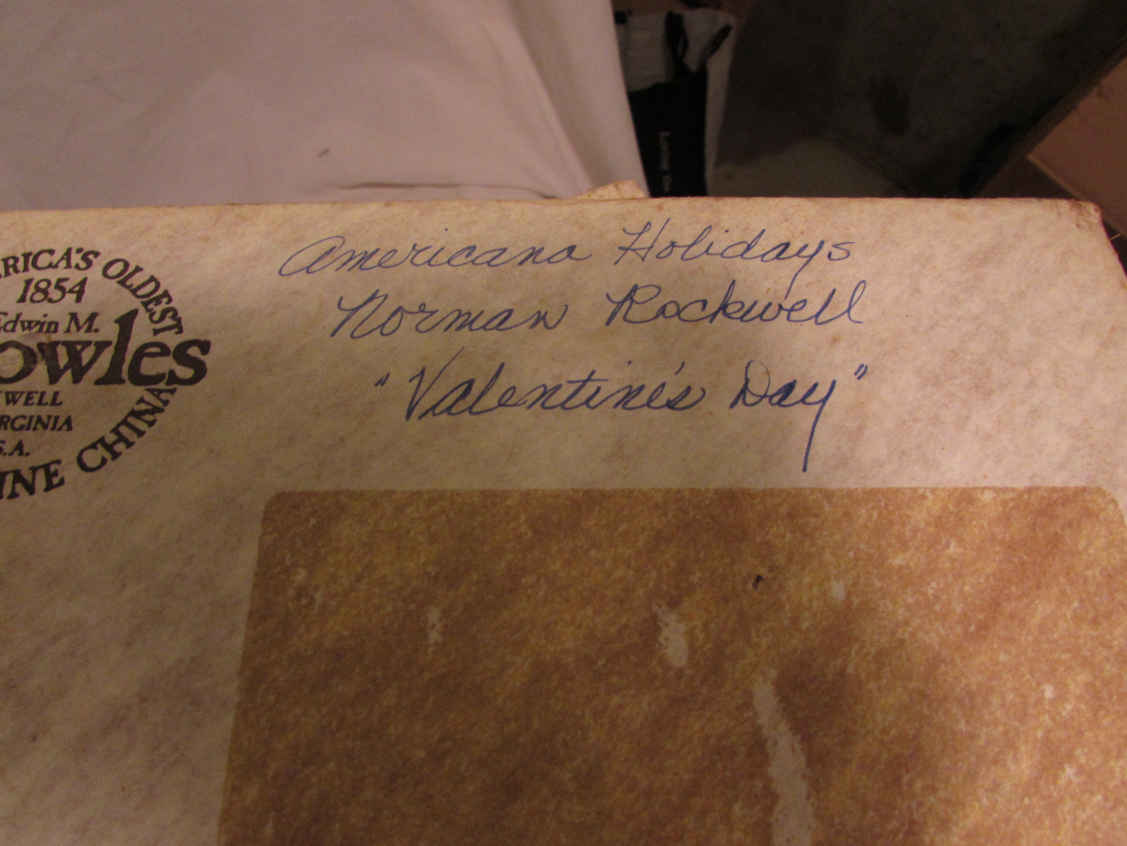 Americana Holidays
Norman Rockwell
"Valentine's Day"
RICA'S OLDEST
1854
Edwin M.
owles
WELL
RGINIA
S.A.
INE CHINA